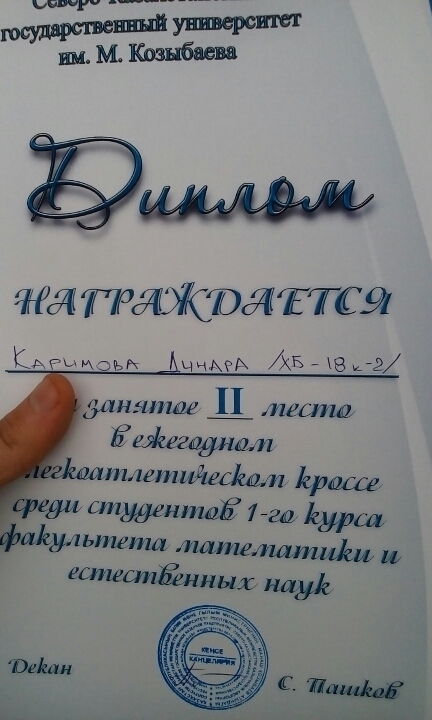 государственный университет
им. М. Козыбаева
Диплом
НАГРАЖДАЕТСЯ
КАРИМОВА ДИНАРА /ХБ-18к-2/
занятое II место
в ежегодном
легкоатлетическом кроссе
среди студентов 1-го курса
факультета математики и
естественных наук
КЕҢСЕ
КАНЦЕЛЯРИЯ
Декан
С. Ташков